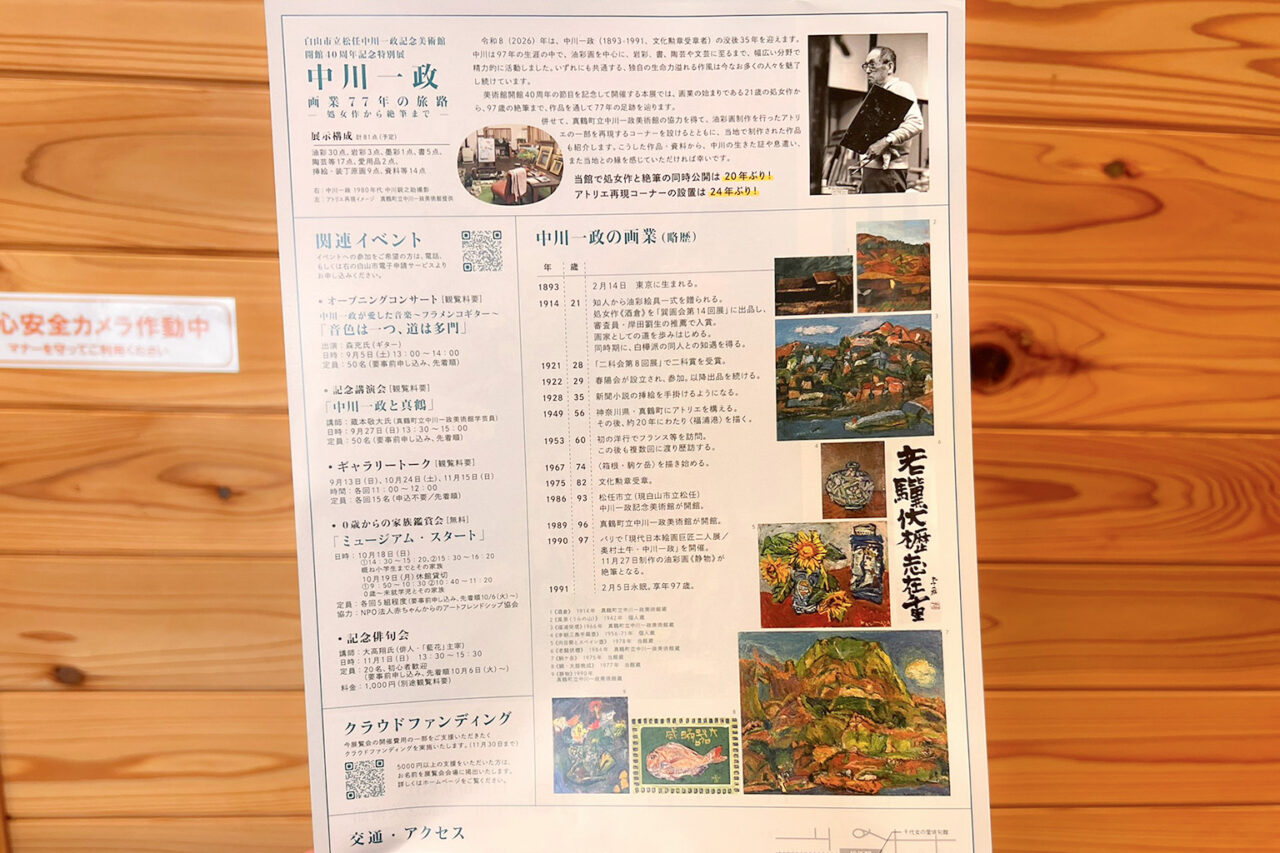 白山市立松任中川一政記念美術館
開館40周年記念特別展
中川一政
画業77年の旅路
― 処女作から絶筆まで ―
展示構成 計81点(予定)
油彩30点、岩彩3点、墨彩1点、書5点、
陶芸等17点、愛用品2点、
挿絵・装丁原画9点、資料等14点
右:中川一政 1980年代 中川鋭之助撮影
左:アトリエ再現イメージ 真鶴町立中川一政美術館提供
令和8(2026)年は、中川一政(1893-1991、文化勲章受章者)の没後35年を迎えます。
中川は97年の生涯の中で、油彩画を中心に、岩彩、書、陶芸や文芸に至るまで、幅広い分野で
精力的に活動しました。いずれにも共通する、独自の生命力溢れる作風は今なお多くの人々を魅了
し続けています。
美術館開館40周年の節目を記念して開催する本展では、画業の始まりである21歳の処女作か
ら、97歳の絶筆まで、作品を通して77年の足跡を辿ります。
併せて、真鶴町立中川一政美術館の協力を得て、油彩画制作を行ったアトリ
エの一部を再現するコーナーを設けるとともに、当地で制作された作品
も紹介します。こうした作品・資料から、中川の生きた証や息遣い、
また当地との縁を感じていただければ幸いです。
当館で処女作と絶筆の同時公開は 20年ぶり!
アトリエ再現コーナーの設置は 24年ぶり!
関連イベント
イベントへの参加をご希望の方は、電話、
もしくは右の白山市電子申請サービスより
お申し込みください。
• オープニングコンサート[観覧料要]
中川一政が愛した音楽~フラメンコギター~
「音色は一つ、道は多門」
出演:森充氏(ギター)
日時:9月5日(土)13:00~14:00
定員:50名(要事前申し込み、先着順)
• 記念講演会[観覧料要]
「中川一政と真鶴」
講師:蔵本敬大氏(真鶴町立中川一政美術館学芸員)
日時:9月27日(日)13:30~15:00
定員:50名(要事前申し込み、先着順)
• ギャラリートーク[観覧料要]
9月13日(日)、10月24日(土)、11月15日(日)
時間:各回11:00~12:00
定員:各回15名(申込不要/先着順)
• 0歳からの家族鑑賞会[無料]
「ミュージアム・スタート」
日時:10月18日(日)
①14:30~15:20、②15:30~16:20
概ね小学生までとその家族
10月19日(月)休館貸切
①9:50~10:30 ②10:40~11:20
0歳~未就学児とその家族
定員:各回5組程度(要事前申し込み、先着順10/6(火)~)
協力:NPO法人赤ちゃんからのアートフレンドシップ協会
• 記念俳句会
講師:大高翔氏(俳人・「藍花」主宰)
日時:11月1日(日) 13:30~15:30
定員:20名、初心者歓迎
(要事前申し込み、先着順10月6日(火)~)
料金:1,000円(別途観覧料要)
クラウドファンディング
今展覧会の開催費用の一部をご支援いただきたく
クラウドファンディングを実施いたします。(11月30日まで)
5000円以上の支援をいただいた方は、
お名前を展覧会会場に掲出いたします。
詳しくはホームページをご覧ください。
中川一政の画業(略歴)
年 歳
1893 2月14日 東京に生まれる。
1914 21 知人から油彩絵具一式を贈られる。
処女作《酒倉》を「巽画会第14回展」に出品し、
審査員・岸田劉生の推薦で入賞。
画家としての道を歩みはじめる。
同時期に、白樺派の同人との知遇を得る。
1921 28 「二科会第8回展」で二科賞を受賞。
1922 29 春陽会が設立され、参加。以降出品を続ける。
1928 35 新聞小説の挿絵を手掛けるようになる。
1949 56 神奈川県・真鶴町にアトリエを構える。
その後、約20年にわたり〈福浦港〉を描く。
1953 60 初の洋行でフランス等を訪問。
この後も複数回に渡り歴訪する。
1967 74 〈箱根・駒ケ岳〉を描き始める。
1975 82 文化勲章受章。
1986 93 松任市立(現白山市立松任)
中川一政記念美術館が開館。
1989 96 真鶴町立中川一政美術館が開館。
1990 97 パリで「現代日本絵画巨匠二人展/
奥村土牛・中川一政」を開催。
11月27日制作の油彩画《静物》が
絶筆となる。
1991 2月5日永眠。享年97歳。
1《酒倉》 1914年 真鶴町立中川一政美術館蔵
1942年 個人蔵
3《福浦突堤》1966年 真鶴町立中川一政美術館蔵
個人蔵
5《向日葵とスペイン壺》 1978年 当館蔵
6《老驥伏櫪》 1984年 真鶴町立中川一政美術館蔵
7《駒ケ岳》 1975年 当館蔵
8《鯛・大器晩成》 1977年 当館蔵
9《静物》1990年
真鶴町立中川一政美術館蔵
1
2
3
4
5
6
7
8
9
老驥伏櫪志在重
大器晩成
交通・アクセス
千代女の里俳句館
心安全カメラ作動中
マナーを守ってご利用ください